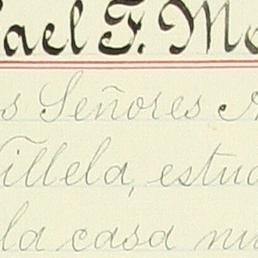 ael F. M
s Señores
Villela, estud
la casa nu